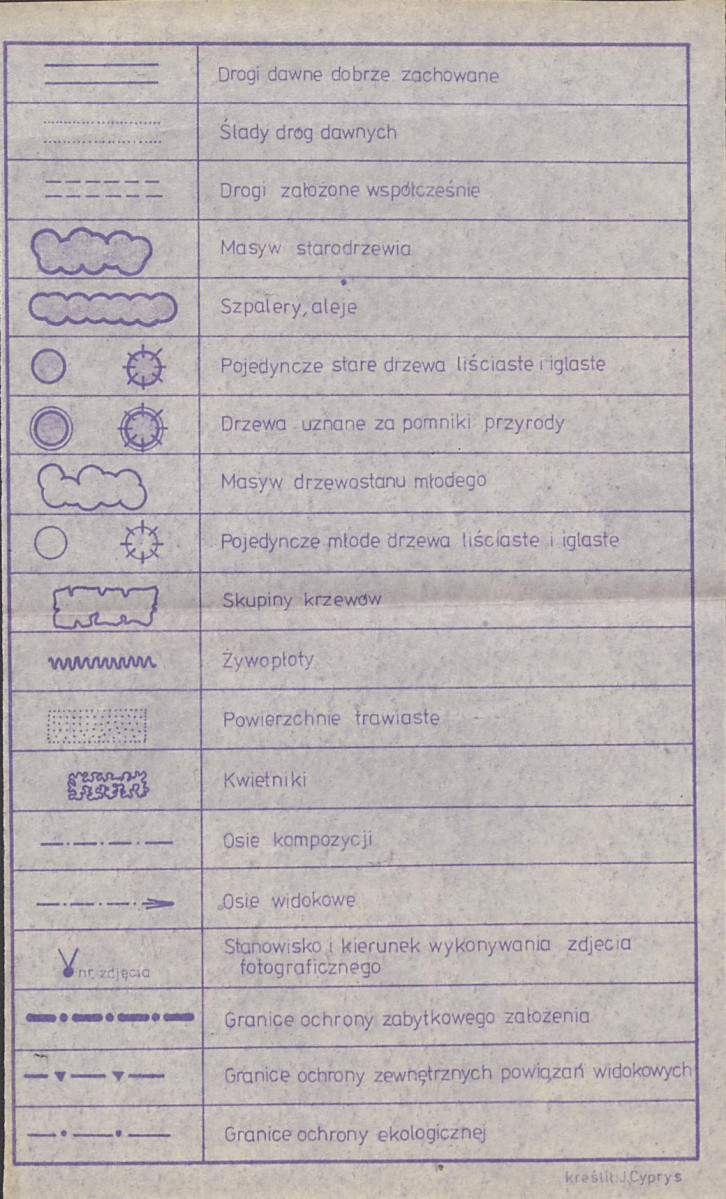 Drogi dawne dobrze zachowane
Ślady dróg dawnych
Drogi założone współcześnie
Masyw starodrzewia
Szpalery, aleje
Pojedyncze stare drzewa liściaste i iglaste
Drzewa uznane za pomniki przyrody
Masyw drzewostanu młodego
Pojedyncze młode drzewa liściaste i iglaste
Skupiny krzewów
Żywopłoty
Powierzchnie trawiaste
Kwietniki
Osie kompozycji
Osie widokowe
nr zdjęcia
Stanowisko i kierunek wykonywania zdjęcia
fotograficznego
Granice ochrony zabytkowego założenia
Granice ochrony zewnętrznych powiązań widokowych
Granice ochrony ekologicznej
kreślił: J.Cyprys